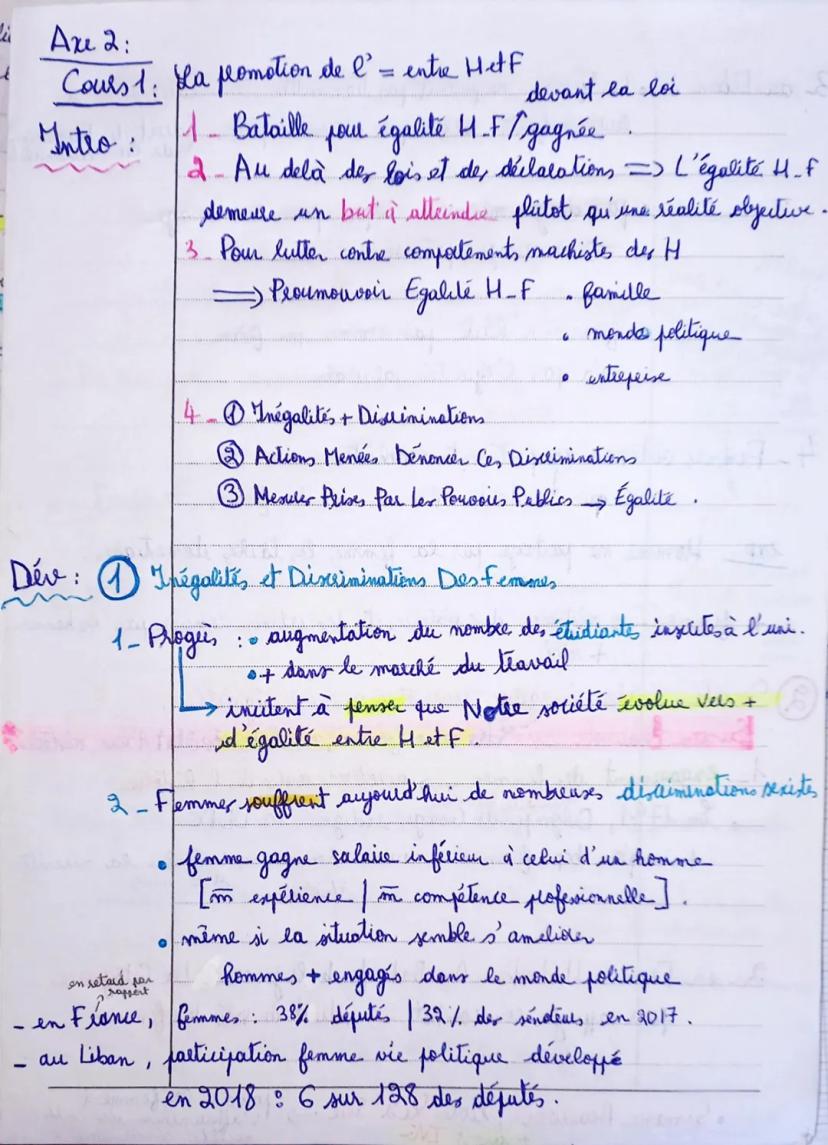 Axe 2:
Cours 1: La promotion de l' = entre H et F
devant la loi
Intro: 1 - Bataille pour égalité H-F / gagnée.
2 - Au delà des lois et des déclarations => L'égalité H-F
demeure un but à atteindre plûtot qu'une réalité objective.
3 - Pour lutter contre comportements machistes des H
=> Proumouvoir Egalité H-F • famille
• monde politique
• entreprise
4 - ① Inégalités + Discriminations
② Actions Menées Dénoncer Ces Discriminations
③ Mesures Prises Par Les Pouvoirs Publics → Égalité.
Dév: ① Inégalités et Discriminations Des femmes
1 - Progrès : • augmentation du nombre des étudiantes inscrites à l'uni.
• + dans le marché du travail
→ incitent à penser que Notre société évolue vers +
d'égalité entre H et F.
2 - Femmes souffrent aujourd'hui de nombreuses discriminations sexistes
• femme gagne salaire inférieur à celui d'un homme
[m̄ expérience / m̄ compétence professionnelle].
• même si la situation semble s'améliorer
hommes + engagés dans le monde politique
en retard par
rapport
- en France, femmes : 38% députés / 32% des sénateurs en 2017.
- au Liban, participation femme vie politique développé
en 2018 : 6 sur 128 des députés.